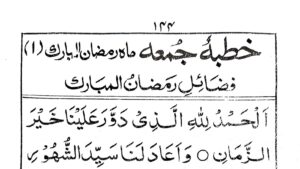 ۱۴۴
خطبۂ جمعہ ماہ رمضان المبارک (۱)
فضائل رمضان المبارک
اَلْحَمْدُ لِلّٰهِ الَّذِیْ دَوَّرَ عَلَیْنَا خَیْرَ
الزَّمَانِ ○ وَاَعَادَ لَنَا سَیِّدَ الشُّهُوْرِ